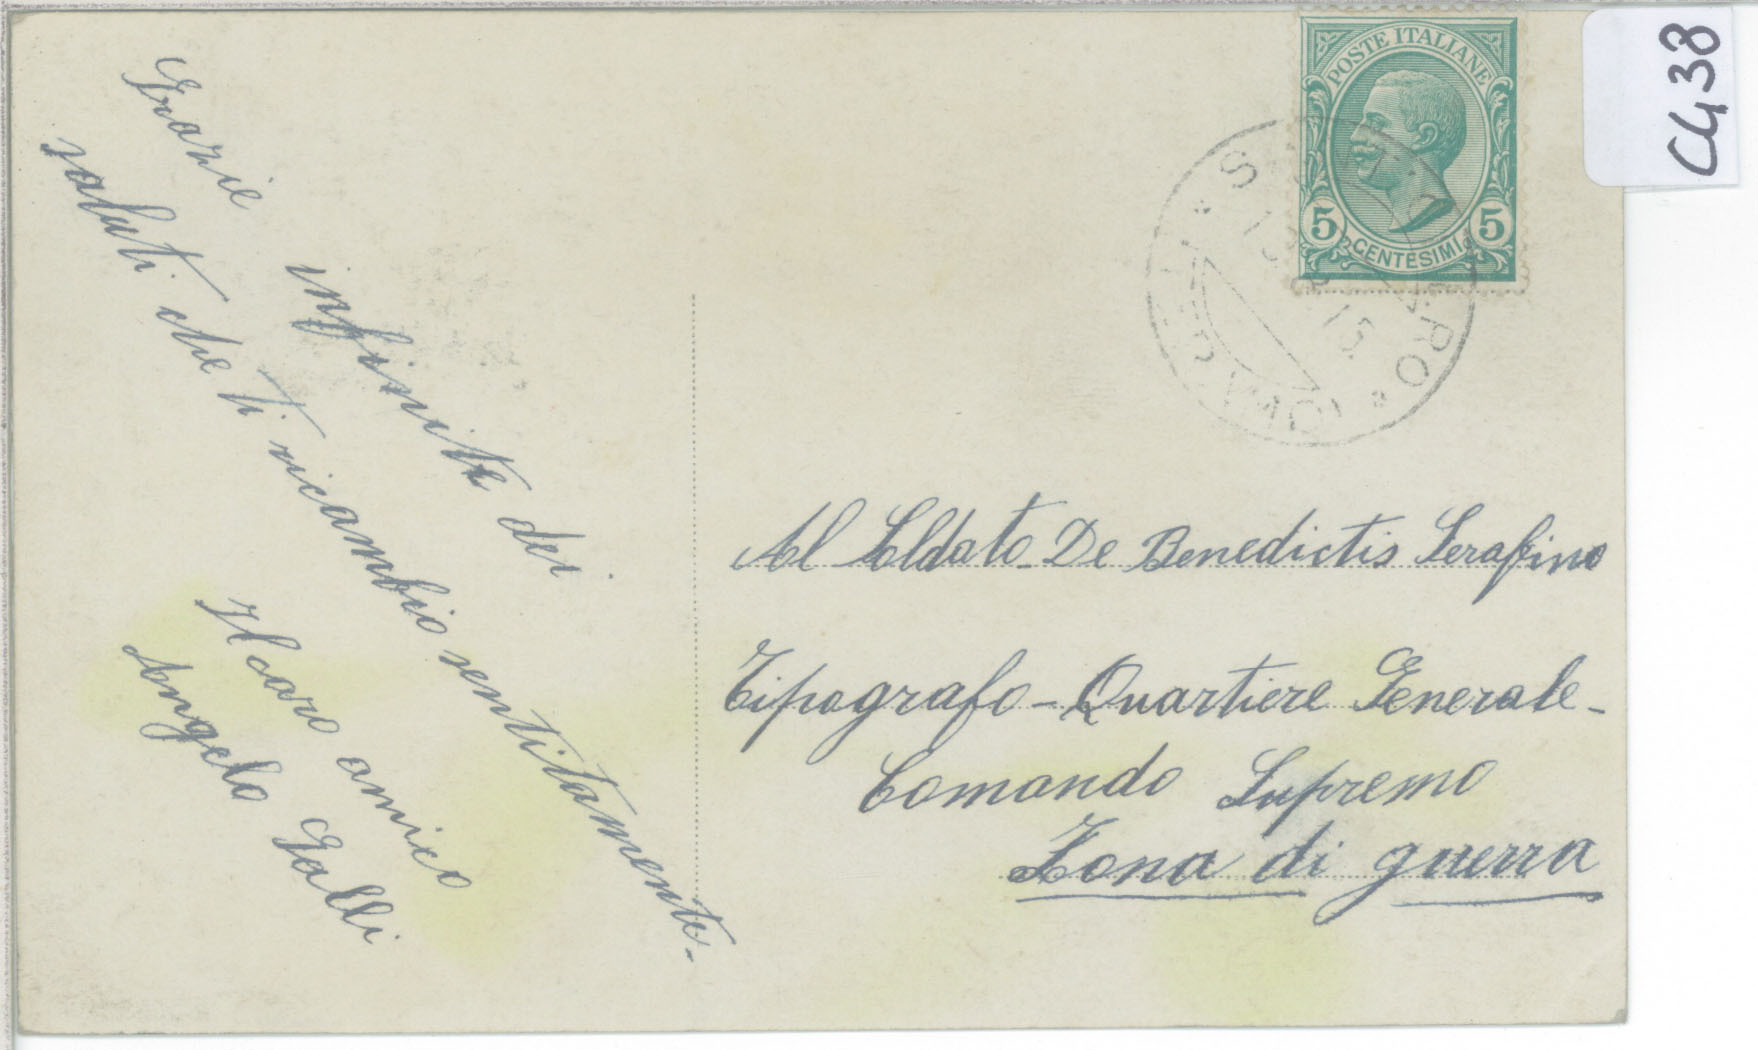 C438
POSTE ITALIANE
5 CENTESIMI 5
Grazie infinite dei
saluti che ti ricambio sentitamente.
Il caro amico
Angelo Galli
Al Soldato De Benedictis Serafino
Tipografo - Quartiere Generale -
Comando Supremo
Zona di guerra